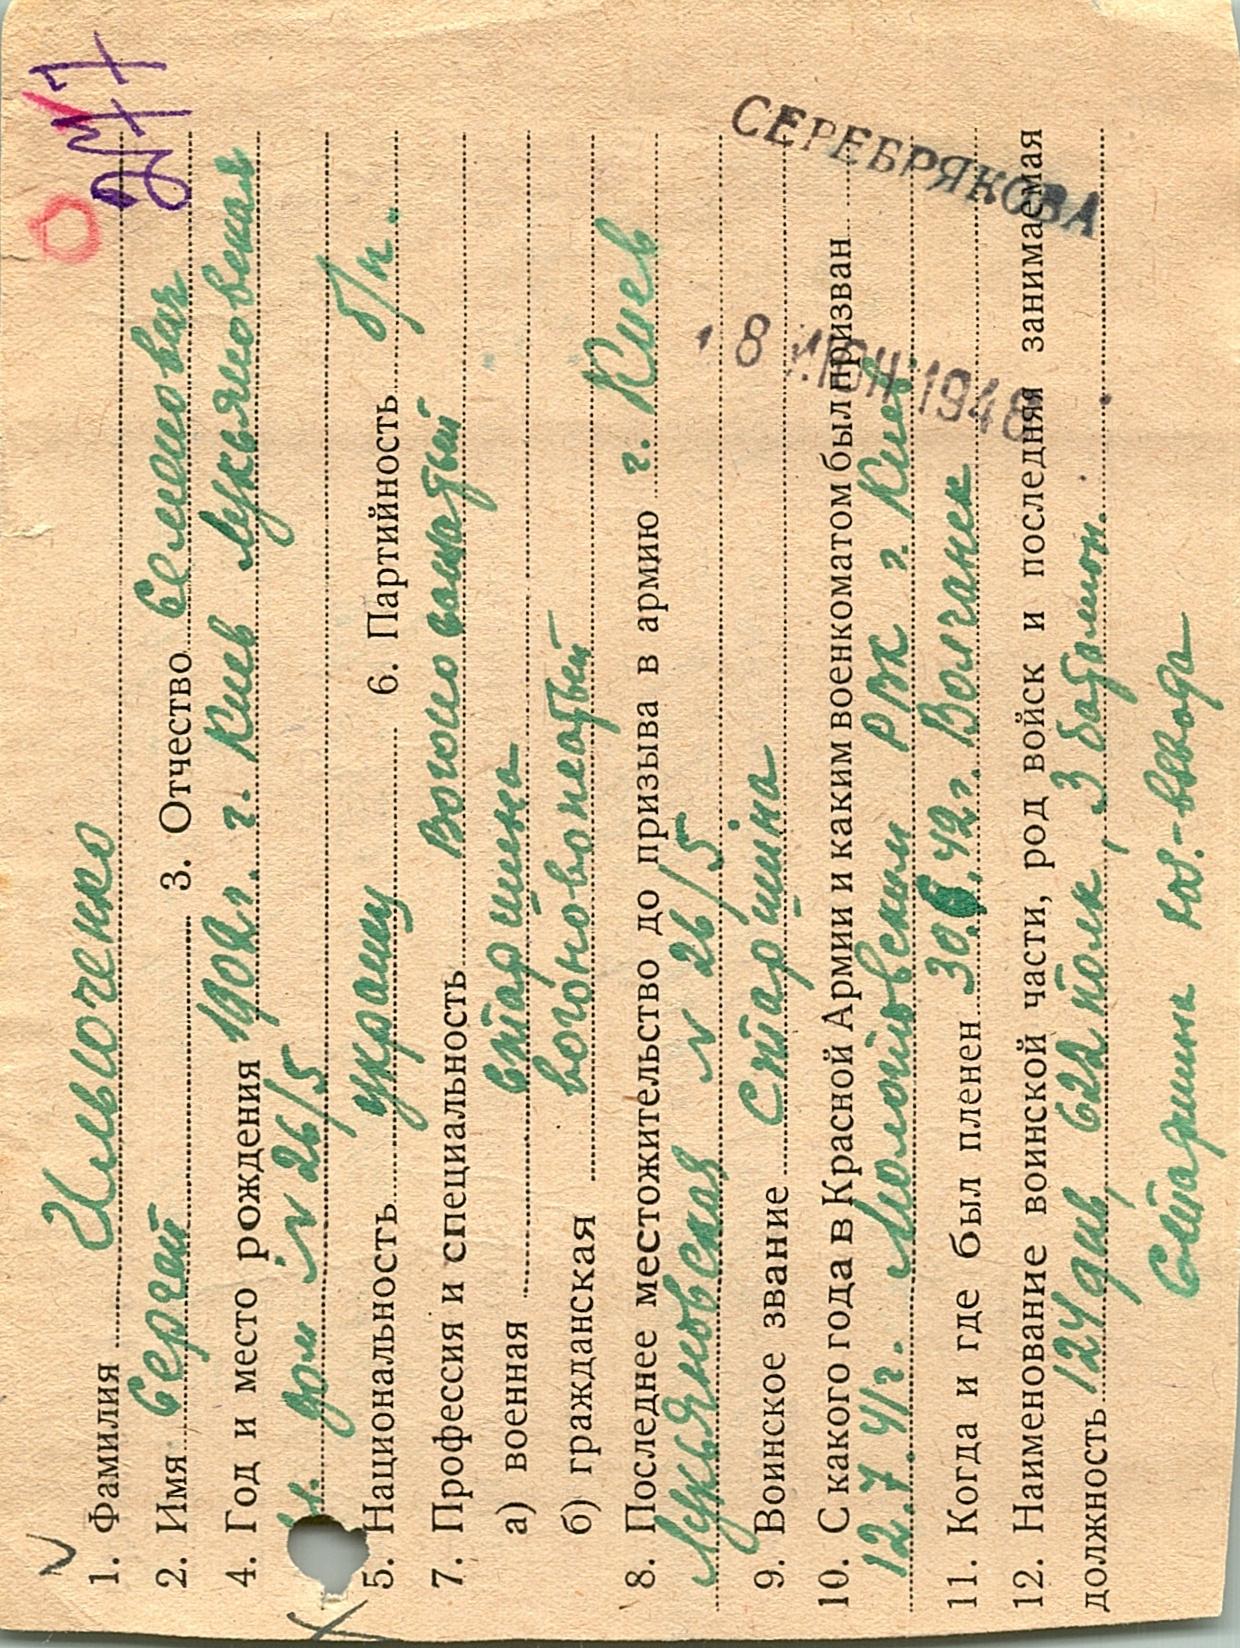 1. Фамилия Ильюченко
2. Имя Сергей 3. Отчество Семенович
4. Год и место рождения 1902 г. г. Киев Лукьяновская
ул. дом № 26/5
5. Национальность украинец 6. Партийность б/п.
7. Профессия и специальность
а) военная старшина
б) гражданская
8. Последнее местожительство до призыва в армию г. Киев
Лукьяновская № 26/5
9. Воинское звание Старшина
10. С какого года в Красной Армии и каким военкоматом был призван
12.7.41г. Молотовским РВК г. Киев
11. Когда и где был пленен 30.6.42г. Волчанск
12. Наименование воинской части, род войск и последняя занимаемая
должность 124 див, 622 полк, 3 батальон.
Старшина хоз.-взвода
СЕРЕБРЯКОВА
8 ИЮН 1948